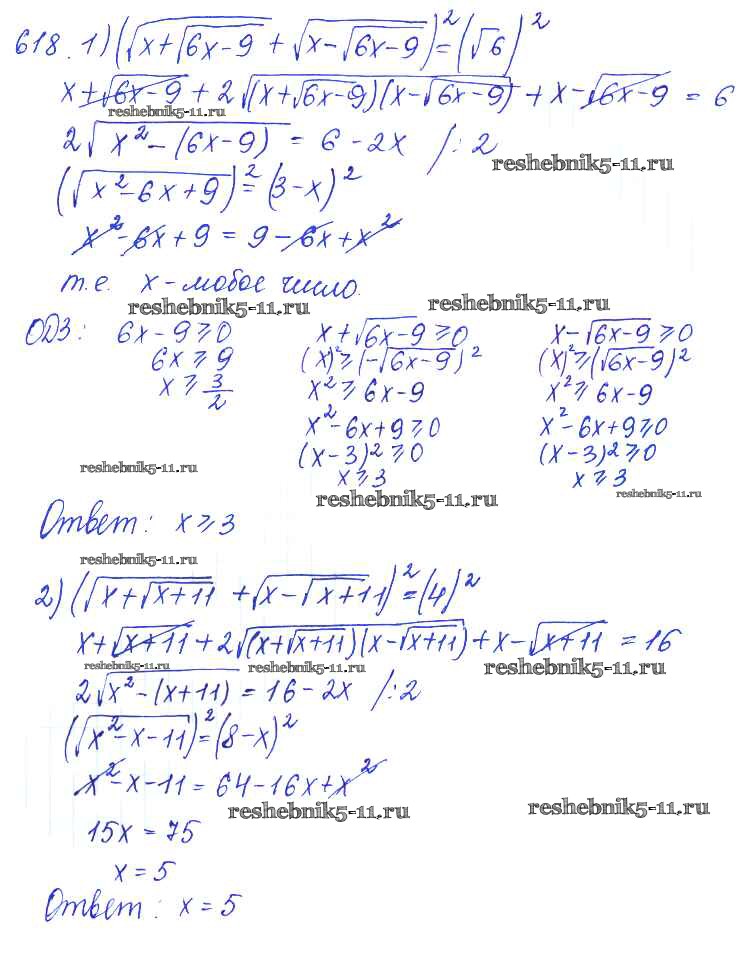 618. 1) (√(x+√(6x-9)) + √(x-√(6x-9)))² = (√6)²
x+√(6x-9) + 2√((x+√(6x-9))(x-√(6x-9))) + x-√(6x-9) = 6
reshebnik5-11.ru
2√(x²-(6x-9)) = 6-2x /:2
reshebnik5-11.ru
(√(x²-6x+9))² = (3-x)²
x²-6x+9 = 9-6x+x²
т.е. x-любое число.
reshebnik5-11.ru reshebnik5-11.ru
ОДЗ: 6x-9⩾0 x+√(6x-9)⩾0 x-√(6x-9)⩾0
6x⩾9 (x)²⩾(-√(6x-9))² (x)²⩾(√(6x-9))²
x⩾3/2 x²⩾6x-9 x²⩾6x-9
x²-6x+9⩾0 x²-6x+9⩾0
reshebnik5-11.ru (x-3)²⩾0 (x-3)²⩾0
x⩾3 x⩾3
reshebnik5-11.ru reshebnik5-11.ru
Ответ: x⩾3
reshebnik5-11.ru
2) (√(x+√(x+11)) + √(x-√(x+11)))² = (4)²
x+√(x+11) + 2√((x+√(x+11))(x-√(x+11))) + x-√(x+11) = 16
reshebnik5-11.ru reshebnik5-11.ru reshebnik5-11.ru
2√(x²-(x+11)) = 16-2x /:2
(√(x²-x-11))² = (8-x)²
x²-x-11 = 64-16x+x²
reshebnik5-11.ru reshebnik5-11.ru
15x = 75
x = 5
Ответ: x = 5